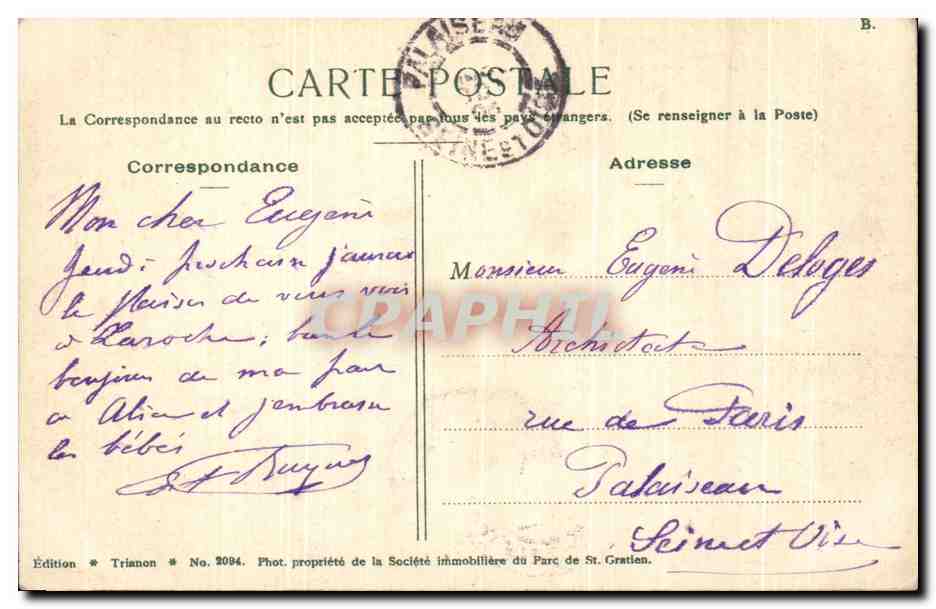 B.
PALAISEAU
SEINE ET OISE
CARTE POSTALE
La Correspondance au recto n'est pas acceptée par tous les pays étrangers. (Se renseigner à la Poste)
Correspondance
Mon cher Eugène
Jeudi prochain j'aurai
le plaisir de vous voir
à Laroche ; 
bonjour de ma part
a Alice et j'embrasse
les bébés
Adresse
Monsieur Eugène Deloges
Architecte
rue de Paris
Palaiseau
Seine et Oise
CPAPHIL
Édition * Trianon * No. 2094. Phot. propriété de la Société immobilière du Parc de St. Gratien.